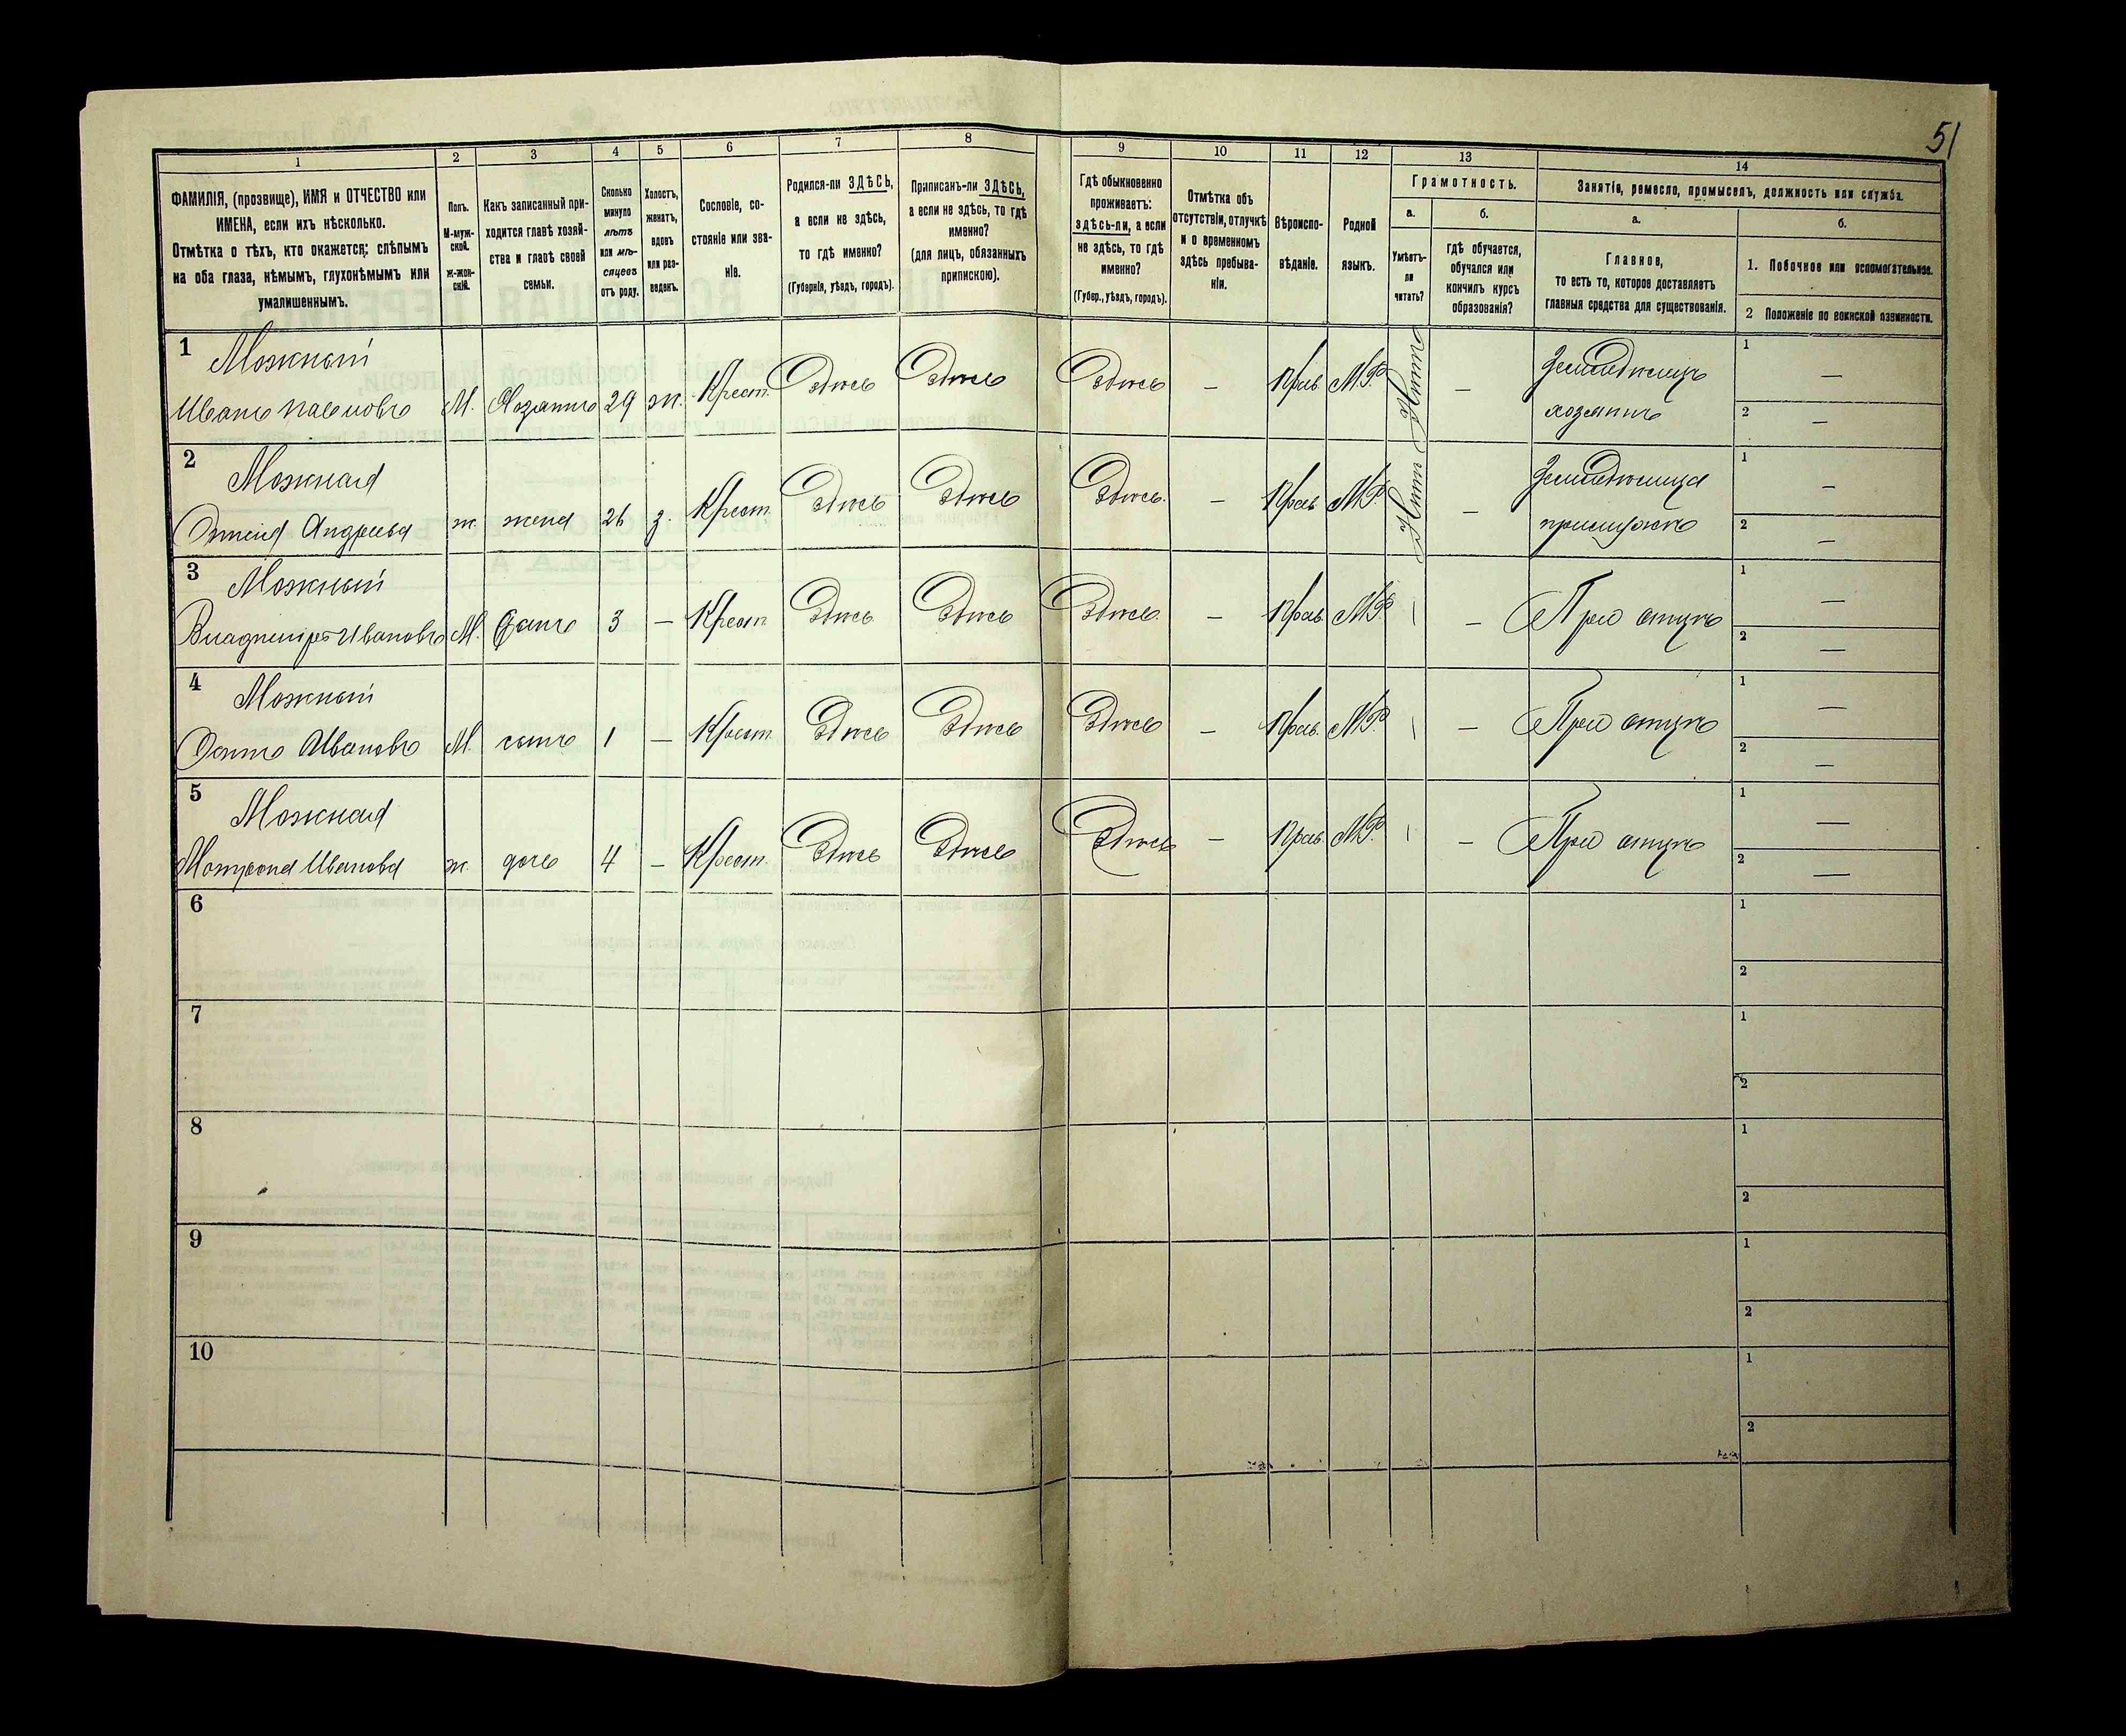 51
1
2
3
4
5
6
7
8
9
10
11
12
13
14
ФАМИЛІЯ, (прозвище), ИМЯ и ОТЧЕСТВО или
ИМЕНА, если ихъ нѣсколько.
Отмѣтка о тѣхъ, кто окажется: слѣпымъ
на оба глаза, нѣмымъ, глухонѣмымъ или
умалишеннымъ.
Полъ.
М-муж-
ской.
ж-жен-
скій.
Какъ записанный при-
ходится главѣ хозяй-
ства и главѣ своей
семьи.
Сколько
минуло
лѣтъ
или мѣ-
сяцевъ
отъ роду.
Холостъ,
женатъ,
вдовъ
или раз-
веденъ.
Сословіе, со-
стояніе или зва-
ніе.
Родился-ли ЗДѢСЬ,
а если не здѣсь,
то гдѣ именно?
(Губернія, уѣздъ, городъ).
Приписанъ-ли ЗДѢСЬ,
а если не здѣсь, то гдѣ
именно?
(для лицъ, обязанныхъ
припискою).
Гдѣ обыкновенно
проживаетъ:
здѣсь-ли, а если
не здѣсь, то гдѣ
именно?
(Губер., уѣздъ, городъ).
Отмѣтка объ
отсутствіи, отлучкѣ
и о временномъ
здѣсь пребыва-
ніи.
Вѣроиспо-
вѣданіе.
Родной
языкъ.
Грамотность.
а.
Умѣетъ-
ли
читать?
б.
гдѣ обучается,
обучался или
кончилъ курсъ
образованія?
Занятіе, ремесло, промыселъ, должность или служба.
а.
Главное,
то есть то, которое доставляетъ
главныя средства для существованія.
б.
1. Побочное или вспомогательное.
2 Положеніе по воинской повинности.
1 Можный
Иванъ Павловъ М. Хозяинъ 29 ж. Крест. Здѣсь Здѣсь Здѣсь — Прав. М.Р. — Земледѣлецъ
хозяинъ
1 —
2 —
2 Можная
Андреева ж. жена 26 з. Крест. Здѣсь Здѣсь Здѣсь. — Прав. М.Р. —
при мужѣ
1 —
2 —
3 Можный
Владимиръ Ивановъ М. Сынъ 3 — Крест. Здѣсь Здѣсь Здѣсь. — Прав. М.Р. — При отцѣ
1 —
2 —
4 Можный
Ивановъ М. сынъ 1 — Крест. Здѣсь Здѣсь Здѣсь — Прав. М.Р. — При отцѣ
1 —
2 —
5 Можная
Мотрона Иванова ж. дочь 4 — Крест. Здѣсь Здѣсь Здѣсь — Прав. М.Р. — При отцѣ
1 —
2 —
6
1
2
7
1
2
8
1
2
9
1
2
10
1
2